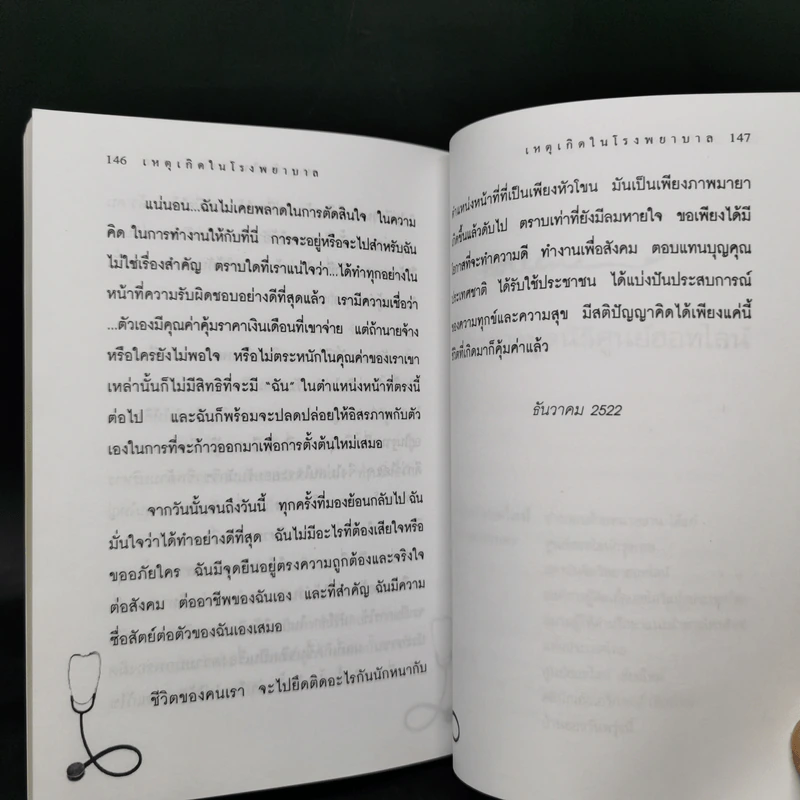 146 เหตุเกิดในโรงพยาบาล
แน่นอน...ฉันไม่เคยพลาดในการตัดสินใจ ในความ
คิด ในการทำงานให้กับที่นี่ การจะอยู่หรือจะไปสำหรับฉัน
ไม่ใช่เรื่องสำคัญ ตราบใดที่เราแน่ใจว่า...ได้ทำทุกอย่างใน
หน้าที่ความรับผิดชอบอย่างดีที่สุดแล้ว เรามีความเชื่อว่า
...ตัวเองมีคุณค่าคุ้มราคาเงินเดือนที่เขาจ่าย แต่ถ้านายจ้าง
หรือใครยังไม่พอใจ หรือไม่ตระหนักในคุณค่าของเราเขา
เหล่านั้นก็ไม่มีสิทธิที่จะมี "ฉัน" ในตำแหน่งหน้าที่ตรงนี้
ต่อไป และฉันก็พร้อมจะปลดปล่อยให้อิสรภาพกับตัว
เองในการที่จะก้าวออกมาเพื่อการตั้งต้นใหม่เสมอ
จากวันนั้นจนถึงวันนี้ ทุกครั้งที่มองย้อนกลับไป ฉัน
มั่นใจว่าได้ทำอย่างดีที่สุด ฉันไม่มีอะไรที่ต้องเสียใจหรือ
ขออภัยใคร ฉันมีจุดยืนอยู่ตรงความถูกต้องและจริงใจ
ต่อสังคม ต่ออาชีพของฉันเอง และที่สำคัญ ฉันมีความ
ซื่อสัตย์ต่อตัวของฉันเองเสมอ
ชีวิตของคนเรา จะไปยึดติดอะไรกันนักหนากับ
เหตุเกิดในโรงพยาบาล 147
ตำแหน่งหน้าที่ที่เป็นเพียงหัวโขน มันเป็นเพียงภาพมายา
เกิดขึ้นแล้วดับไป ตราบเท่าที่ยังมีลมหายใจ ขอเพียงได้มี
โอกาสที่จะทำความดี ทำงานเพื่อสังคม ตอบแทนบุญคุณ
ประเทศชาติ ได้รับใช้ประชาชน ได้แบ่งปันประสบการณ์
ของความทุกข์และความสุข มีสติปัญญาคิดได้เพียงแค่นี้
ชีวิตที่เกิดมาก็คุ้มค่าแล้ว
ธันวาคม 2522